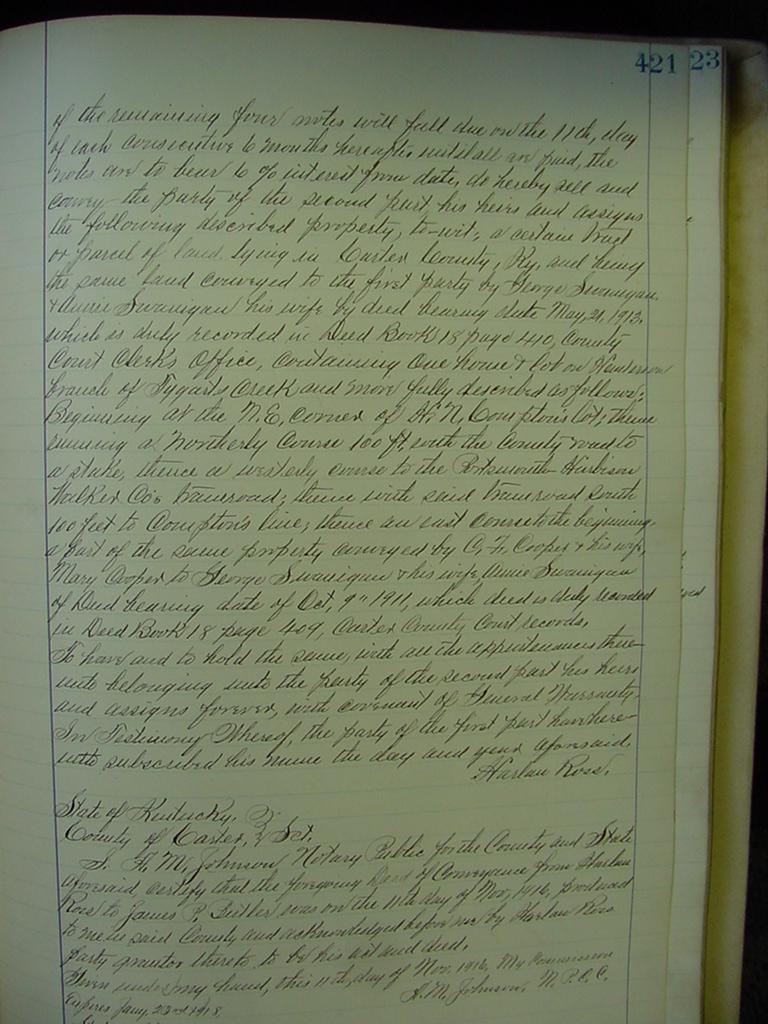 421 23
of the remaining four notes will fall due on the 11th, day
of each consecutive 6 months hereafter until all are paid, the
notes are to bear 6 % interest from date, do hereby sell and
convey the party of the second part, his heirs and assigns
the following described property, to-wit; a certain tract
or parcel of land lying in Carter County, Ky. and being
the same land conveyed to the first party by George Swanigan
& Annie Swanigan his wife by deed bearing date May, 21, 1912,
which is duly recorded in Deed Book 18 page 410, County
Court Clerks Office, containing One house & lot on Henderson
branch of Tygarts Creek and more fully described as follows;
Beginning at the N.E, corner of H. N, Compton's lot; thence
running a Northerly Course 100 ft, with the County road to
a stake, thence a westerly course to the Portsmouth Harbison
Walker Co's tramroad; thence with said tramroad South
100 feet to Compton's line; thence an east course to the beginning,
a part of the same property conveyed by C. F. Cooper & his wife,
Mary Cooper to George Swanigan & his wife Annie Swanigan
of Deed bearing date of Oct, 9" 1911, which deed is duly recorded
in Deed Book 18 page 409, Carter County Court records.
To have and to hold the same, with all the appurtenances there-
unto belonging unto the party of the second part his heirs
and assigns forever, with covenant of General Warranty-
In Testimony Whereof, the party of the first part have here-
unto subscribed his name the day and year aforesaid.
Harlan Ross.
State of Kentucky,
County of Carter, Sct.
I. H. M. Johnson, Notary Public for the County and State
aforesaid certify that the foregoing Deed of Conveyance from Harlan
Ross to James P. was on the 11th day of Nov, 1916, produced
to me in said County and acknowledged before me by Harlan Ross
party grantor thereto to be his act and deed.
Given under my hand, this 11th, day of Nov. 1916, My Commission
Expires Jany, 23rd 1918. H. M. Johnson, N. P. C. C.